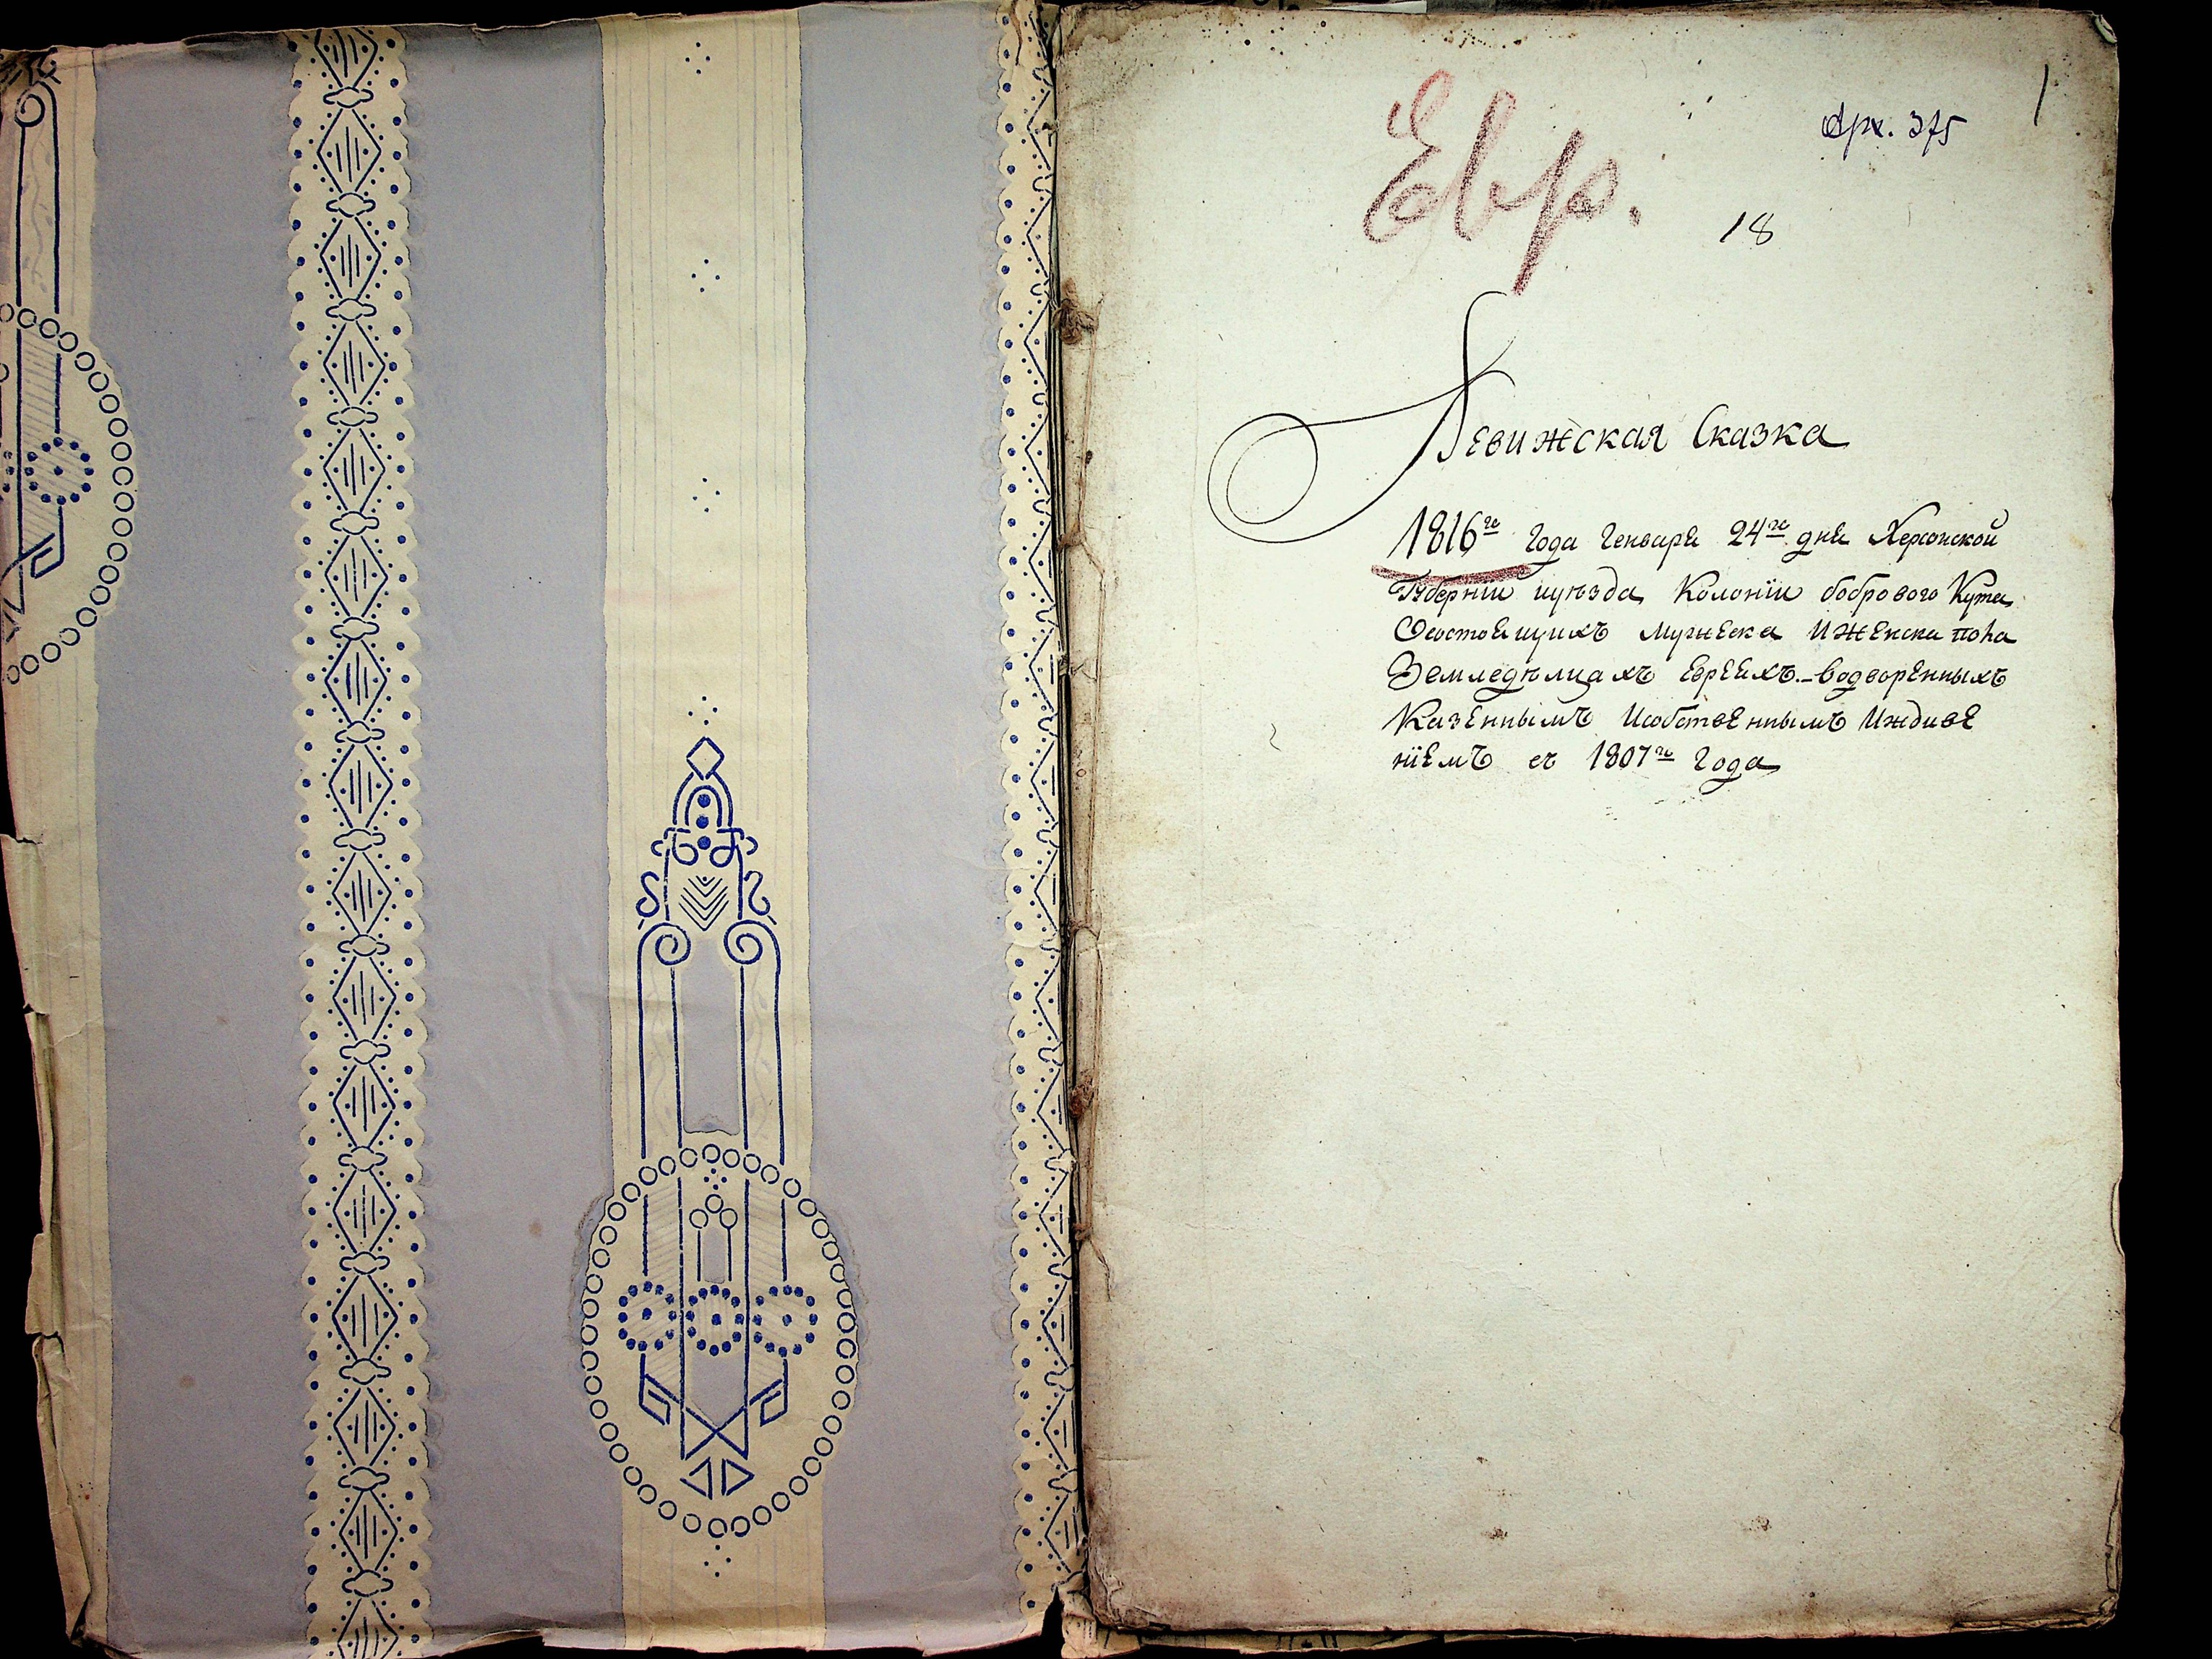 1
Арх. 375
Евр.
18
Ревижская Сказка
1816го Года Генваря 24го дня Херсонской
Губернїи иуѣзда Колонїи бобрового Кута
Осостоящихъ мужеска ИЖенска пола
Земледѣлцахъ Евреяхъ - водворенныхъ
Казеннымъ Исобственнымъ Иждиве
нїемъ съ 1807го Года